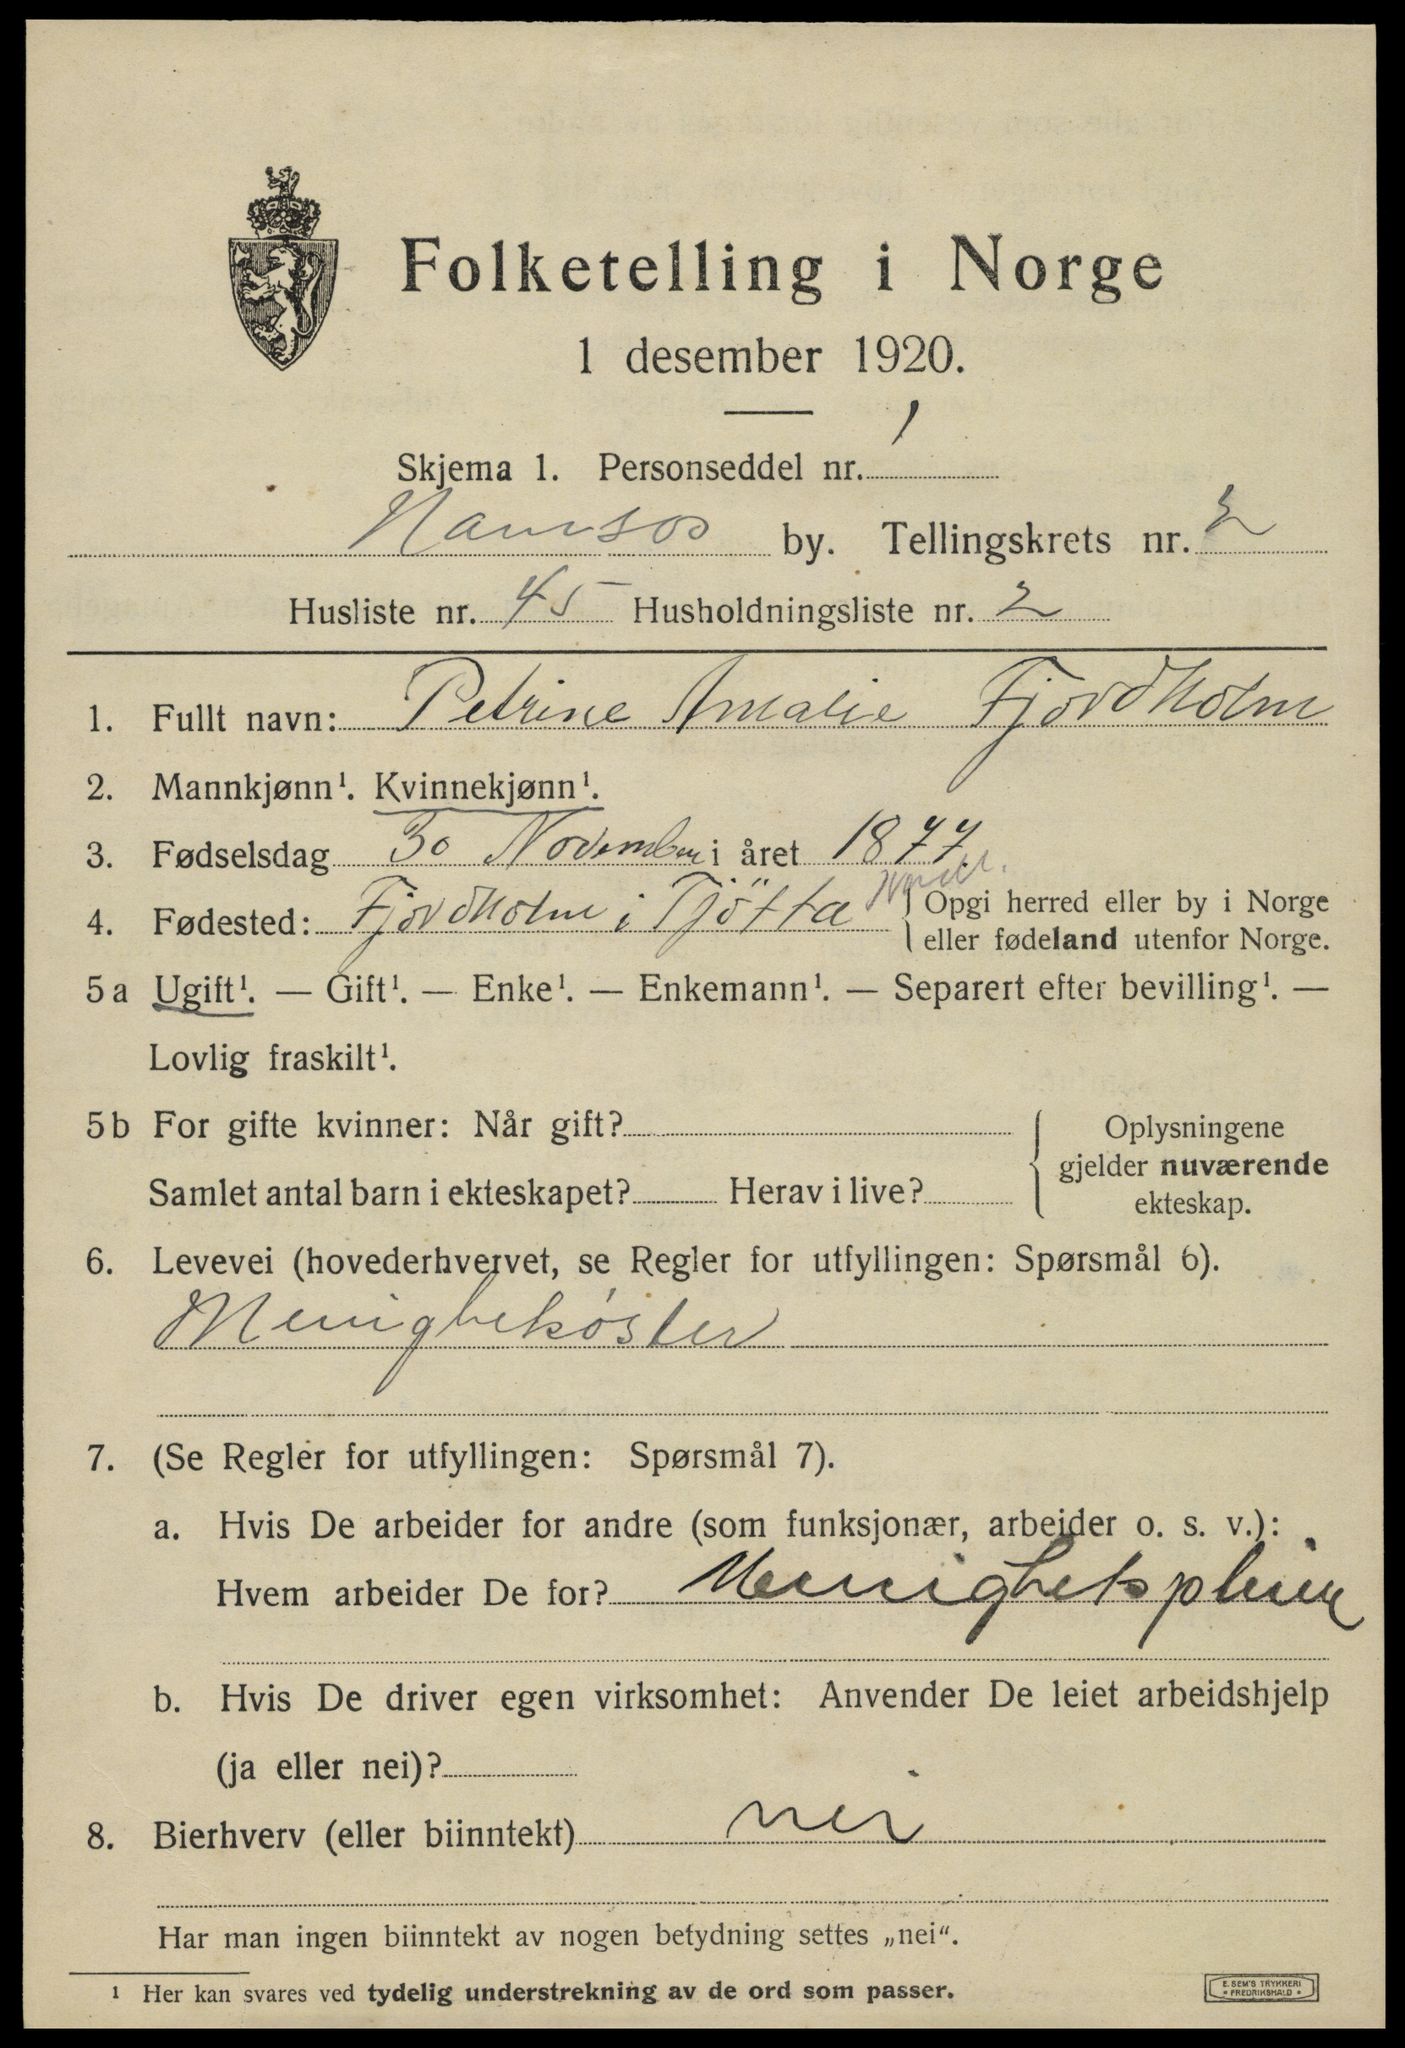 Folketelling i Norge
1 desember 1920.
Skjema 1. Personseddel nr. 1
Namsos by. Tellingskrets nr. 2
Husliste nr. 45 Husholdningsliste nr. 2
1. Fullt navn: Petrine Amalie Fjordholm
2. Mannkjønn¹. Kvinnekjønn¹.
3. Fødselsdag 30 November i året 1877.
4. Fødested: Fjordholm i Tjötta { Opgi herred eller by i Norge
eller fødeland utenfor Norge.
5a Ugift¹. — Gift¹. — Enke¹. — Enkemann¹. — Separert efter bevilling¹. —
Lovlig fraskilt¹.
5b For gifte kvinner: Når gift?
Samlet antal barn i ekteskapet? Herav i live?
{ Oplysningene
gjelder nuværende
ekteskap.
6. Levevei (hovederhvervet, se Regler for utfyllingen: Spørsmål 6).
Menighetsøster
7. (Se Regler for utfyllingen: Spørsmål 7).
a. Hvis De arbeider for andre (som funksjonær, arbeider o. s. v.):
Hvem arbeider De for? Menighetspleien
b. Hvis De driver egen virksomhet: Anvender De leiet arbeidshjelp
(ja eller nei)?
8. Bierhverv (eller biinntekt) nei
Har man ingen biinntekt av nogen betydning settes „nei“.
¹ Her kan svares ved tydelig understrekning av de ord som passer.
E. SEM'S TRYKKERI
* FREDRIKSHALD *